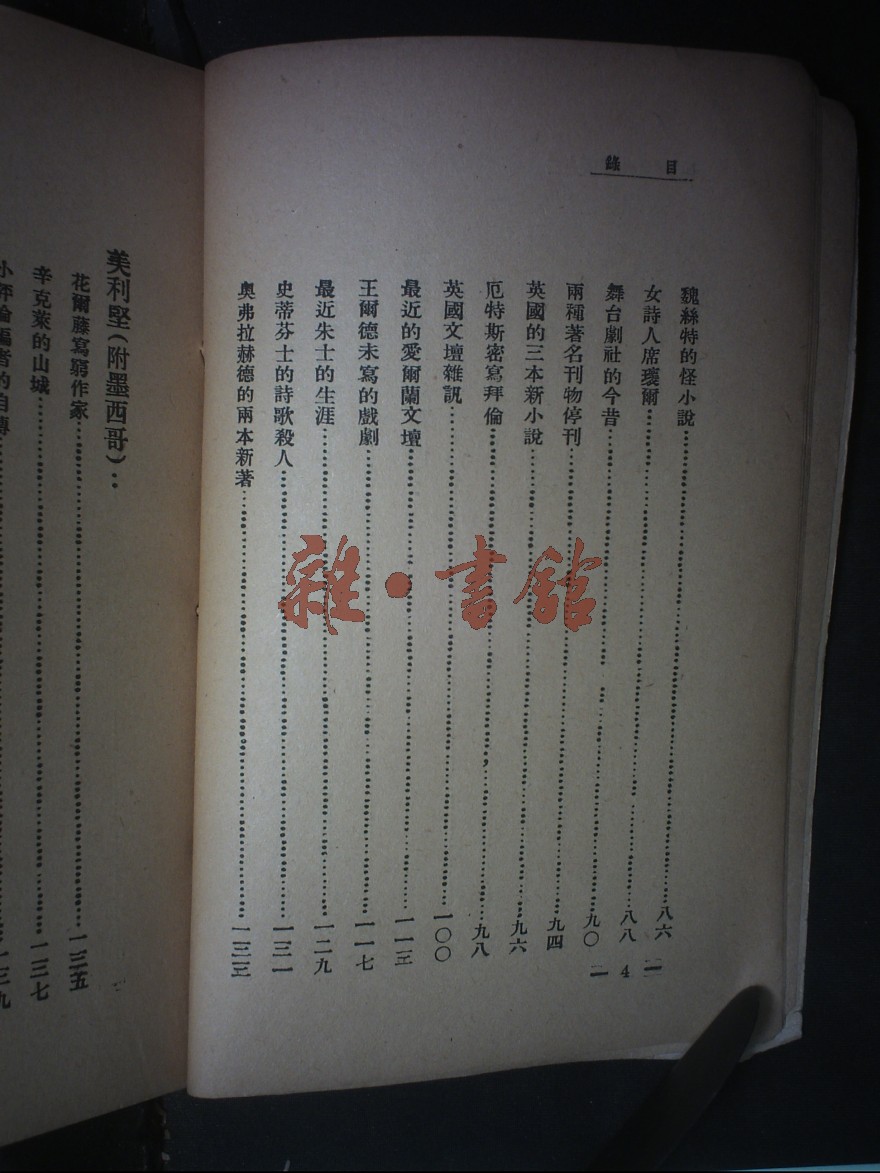 目錄
魏絲特的怪小說……八六
女詩人席瓊爾……八八
舞台劇社的今昔……九〇
兩種著名刊物停刊……九四
英國的三本新小說……九六
厄特斯密寫拜倫……九八
英國文壇雜訊……一〇〇
最近的愛爾蘭文壇……一一三
王爾德未寫的戲劇……一一七
最近朱士的生涯……一二九
史蒂芬士的詩歌殺人……一三一
奧弗拉赫德的兩本新著……一三三
4
美利堅(附墨西哥)：
花爾藤寫窮作家……一三五
辛克萊的山城……一三七
小評論編者的自傳……一三九
雜·書館